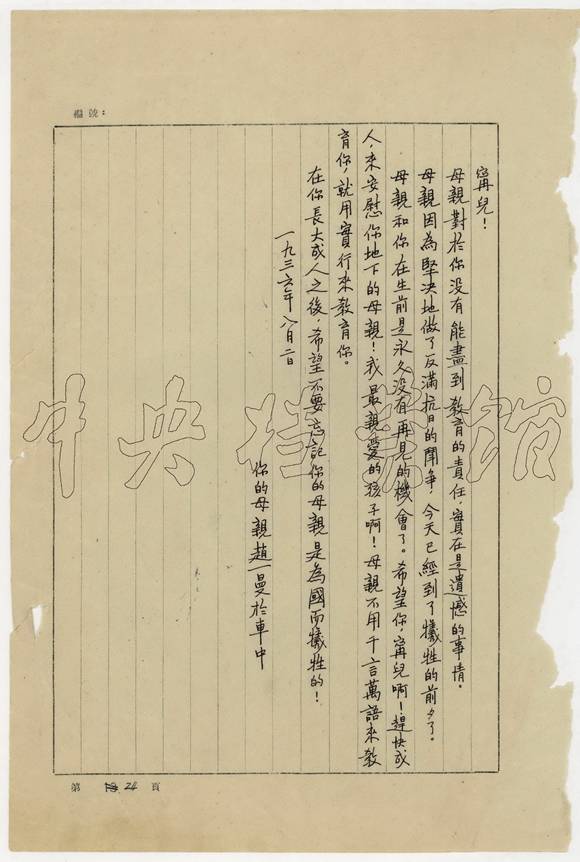 編號：
甯兒！
母親對於你没有能盡到教育的責任，實在是遺憾的事情。
母親因為堅决地做了反滿抗日的鬥争，今天已經到了犧牲的前夕了。
母親和你在生前是永久没有再見的機會了。希望你，甯兒啊！趕快成
人，來安慰你地下的母親！我最親愛的孩子啊！母親不用千言萬語來教
育你，就用實行來教育你。
在你長大成人之後，希望不要忘記你的母親是為國而犧牲的！
一九三六年八月二日
你的母親趙一曼於車中
第 24 頁
中央檔案館